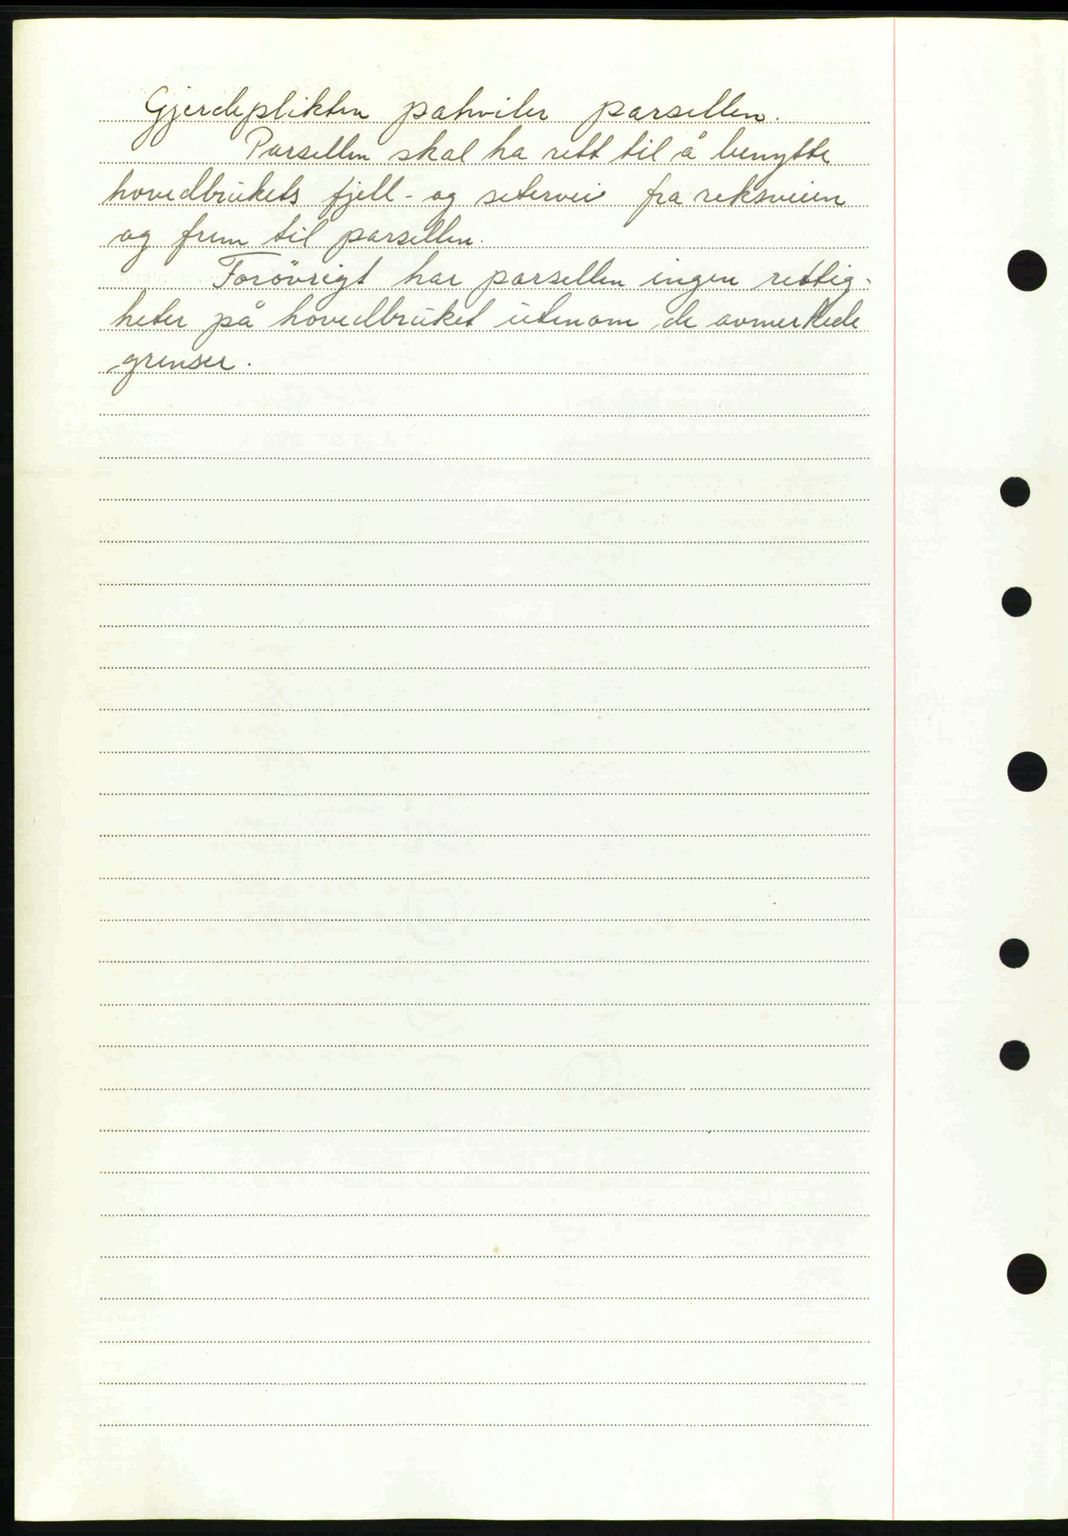 Gjerdeplikten påhviler parsellen.
Parsellen skal ha rett til å benytte
hovedbrükets fjell- og setervei fra reksveien
og frem til parsellen.
Forøvrigt har parsellen ingen rettig-
heter på hovedbrüket ütenom de avmerkede
grenser.